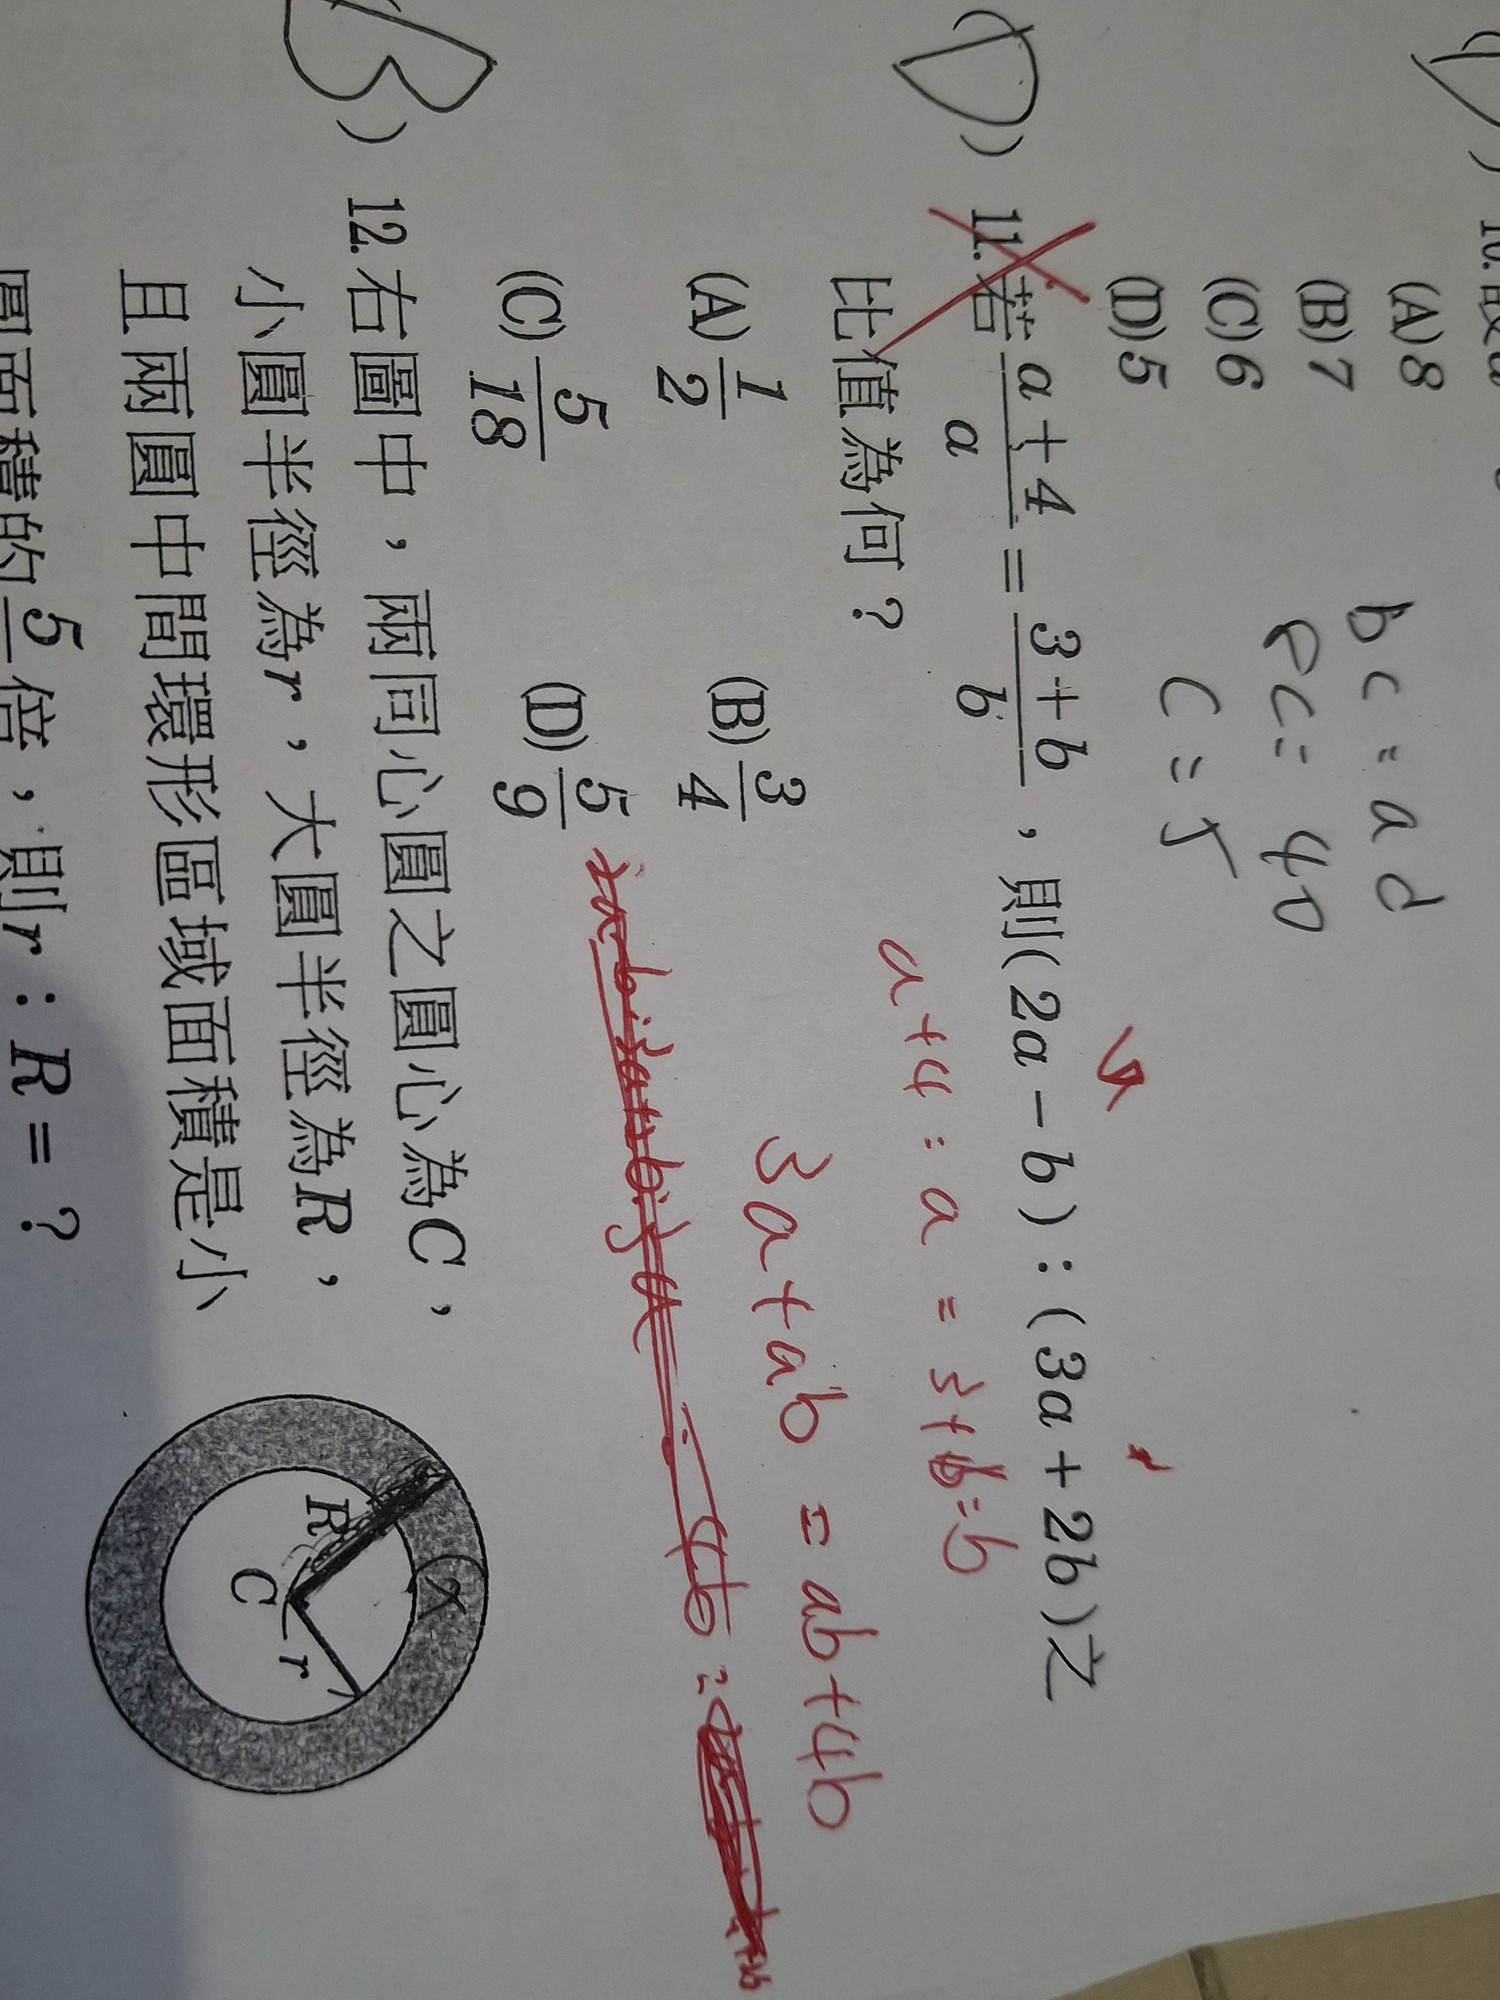 (A) 8
(B) 7
(C) 6
(D) 5
bc = ad
8c = 40
c = 5
(D) 11. 若 \frac{a+4}{a} = \frac{3+b}{b}，則(2a－b)：(3a＋2b)之
比值為何？
a+4 : a = 3+b : b
3a+ab = ab+4b
(A) \frac{1}{2} (B) \frac{3}{4}
(C) \frac{5}{18} (D) \frac{5}{9}
(B) 12. 右圖中，兩同心圓之圓心為C，
小圓半徑為r，大圓半徑為R，
且兩圓中間環形區域面積是小
圓面積的\frac{5}{}倍，則r：R＝？
R
C
r